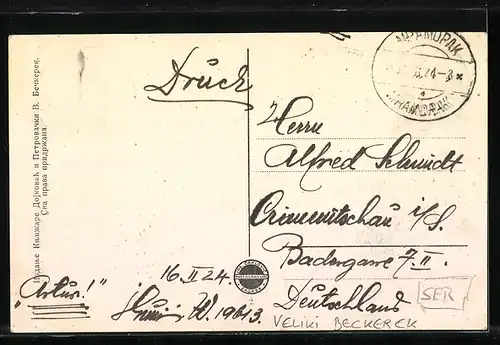 Издање Књижаре Дојковић и Петровачки В. Бечкерек.
Сва права придржана.
Drück
Herrn
Alfred Schmidt
Crimmitschau i/S.
Badergasse 7. II.
Deutschland
16. II 24.
"Artur!"
W. 19613.
SER
VELIKI BECKEREK